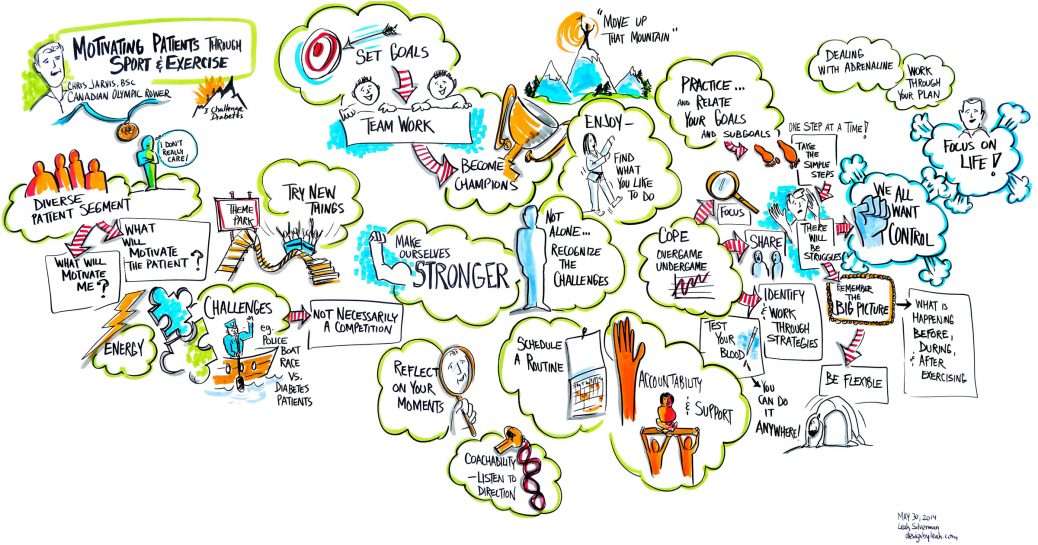 MOTIVATING PATIENTS THROUGH
SPORT & EXERCISE
CHRIS JARVIS, BSC
CANADIAN OLYMPIC ROWER
I Challenge
Diabetes
I DON'T
REALLY
CARE!
DIVERSE
PATIENT SEGMENT
WHAT WILL
MOTIVATE
ME?
WHAT
WILL
MOTIVATE
THE PATIENT?
ENERGY
THEME
PARK
TRY NEW
THINGS
CHALLENGES
eg.
POLICE
BOAT
RACE
VS.
DIABETES
PATIENTS
NOT NECESSARILY
A COMPETITION
SET GOALS
TEAM WORK
BECOME
CHAMPIONS
"MOVE UP
THAT MOUNTAIN"
MAKE
OURSELVES
STRONGER
ENJOY—
FIND
WHAT
YOU LIKE
TO DO
NOT
ALONE...
RECOGNIZE
THE
CHALLENGES
REFLECT
ON YOUR
MOMENTS
COACHABILITY
—LISTEN TO
DIRECTION
SCHEDULE
A ROUTINE
ACCOUNTABILITY
&
SUPPORT
PRACTICE...
AND RELATE
YOUR GOALS
AND SUBGOALS
ONE STEP AT A TIME!
TAKE
THE
SIMPLE
STEPS
FOCUS
COPE
OVERGAME
UNDERGAME
SHARE
THERE
WILL
BE
STRUGGLES
IDENTIFY
& WORK
THROUGH
STRATEGIES
TEST
YOUR
BLOOD
YOU
CAN DO
IT
ANYWHERE!
REMEMBER
THE
BIG PICTURE
BE FLEXIBLE
WHAT IS
HAPPENING
BEFORE,
DURING,
& AFTER
EXERCISING
DEALING
WITH ADRENALINE
WORK
THROUGH
YOUR PLAN
FOCUS ON
LIFE!
WE ALL
WANT
CONTROL
MAY 30, 2014
Leah Silverman
designbyleah.com